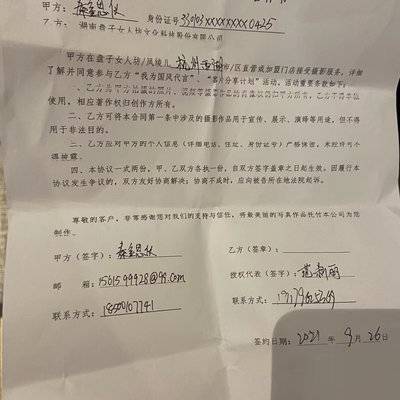 甲方： 身份证号330103XXXXXXXX0425
乙方：湖南盘子女人坊文化科技股份有限公司
甲方在盘子女人坊/凤绫儿 杭州 市/区直营或加盟门店接受摄影服务，详细
了解并同意参与乙方“我为国风代言”、“客片分享计划”活动。活动重要条款如下：
使用。相应著作权归创作方所有。
二、乙方可将本合同第一条中涉及的摄影作品用于宣传、展示、演绎等用途，但不得
用于非法目的。
三、乙方应对甲方的个人信息（详细电话、住址、身份证号）严格保密，未经许可不
得披露。
四、本协议一式两份，甲、乙双方各执一份，自双方签字盖章之日起生效。因履行本
协议发生争议的，双方友好协商解决；协商不成时，应向被告所在地法院起诉。
尊敬的客户，非常感谢您对我们的支持与信任，将最美丽的写真作品托付本公司为您
制作。
甲方（签字）： 乙方（签章）：
邮 箱： 授权代表（签字）：
联系方式：18500107741 联系方式：
签约日期：2021 年 9 月 26 日